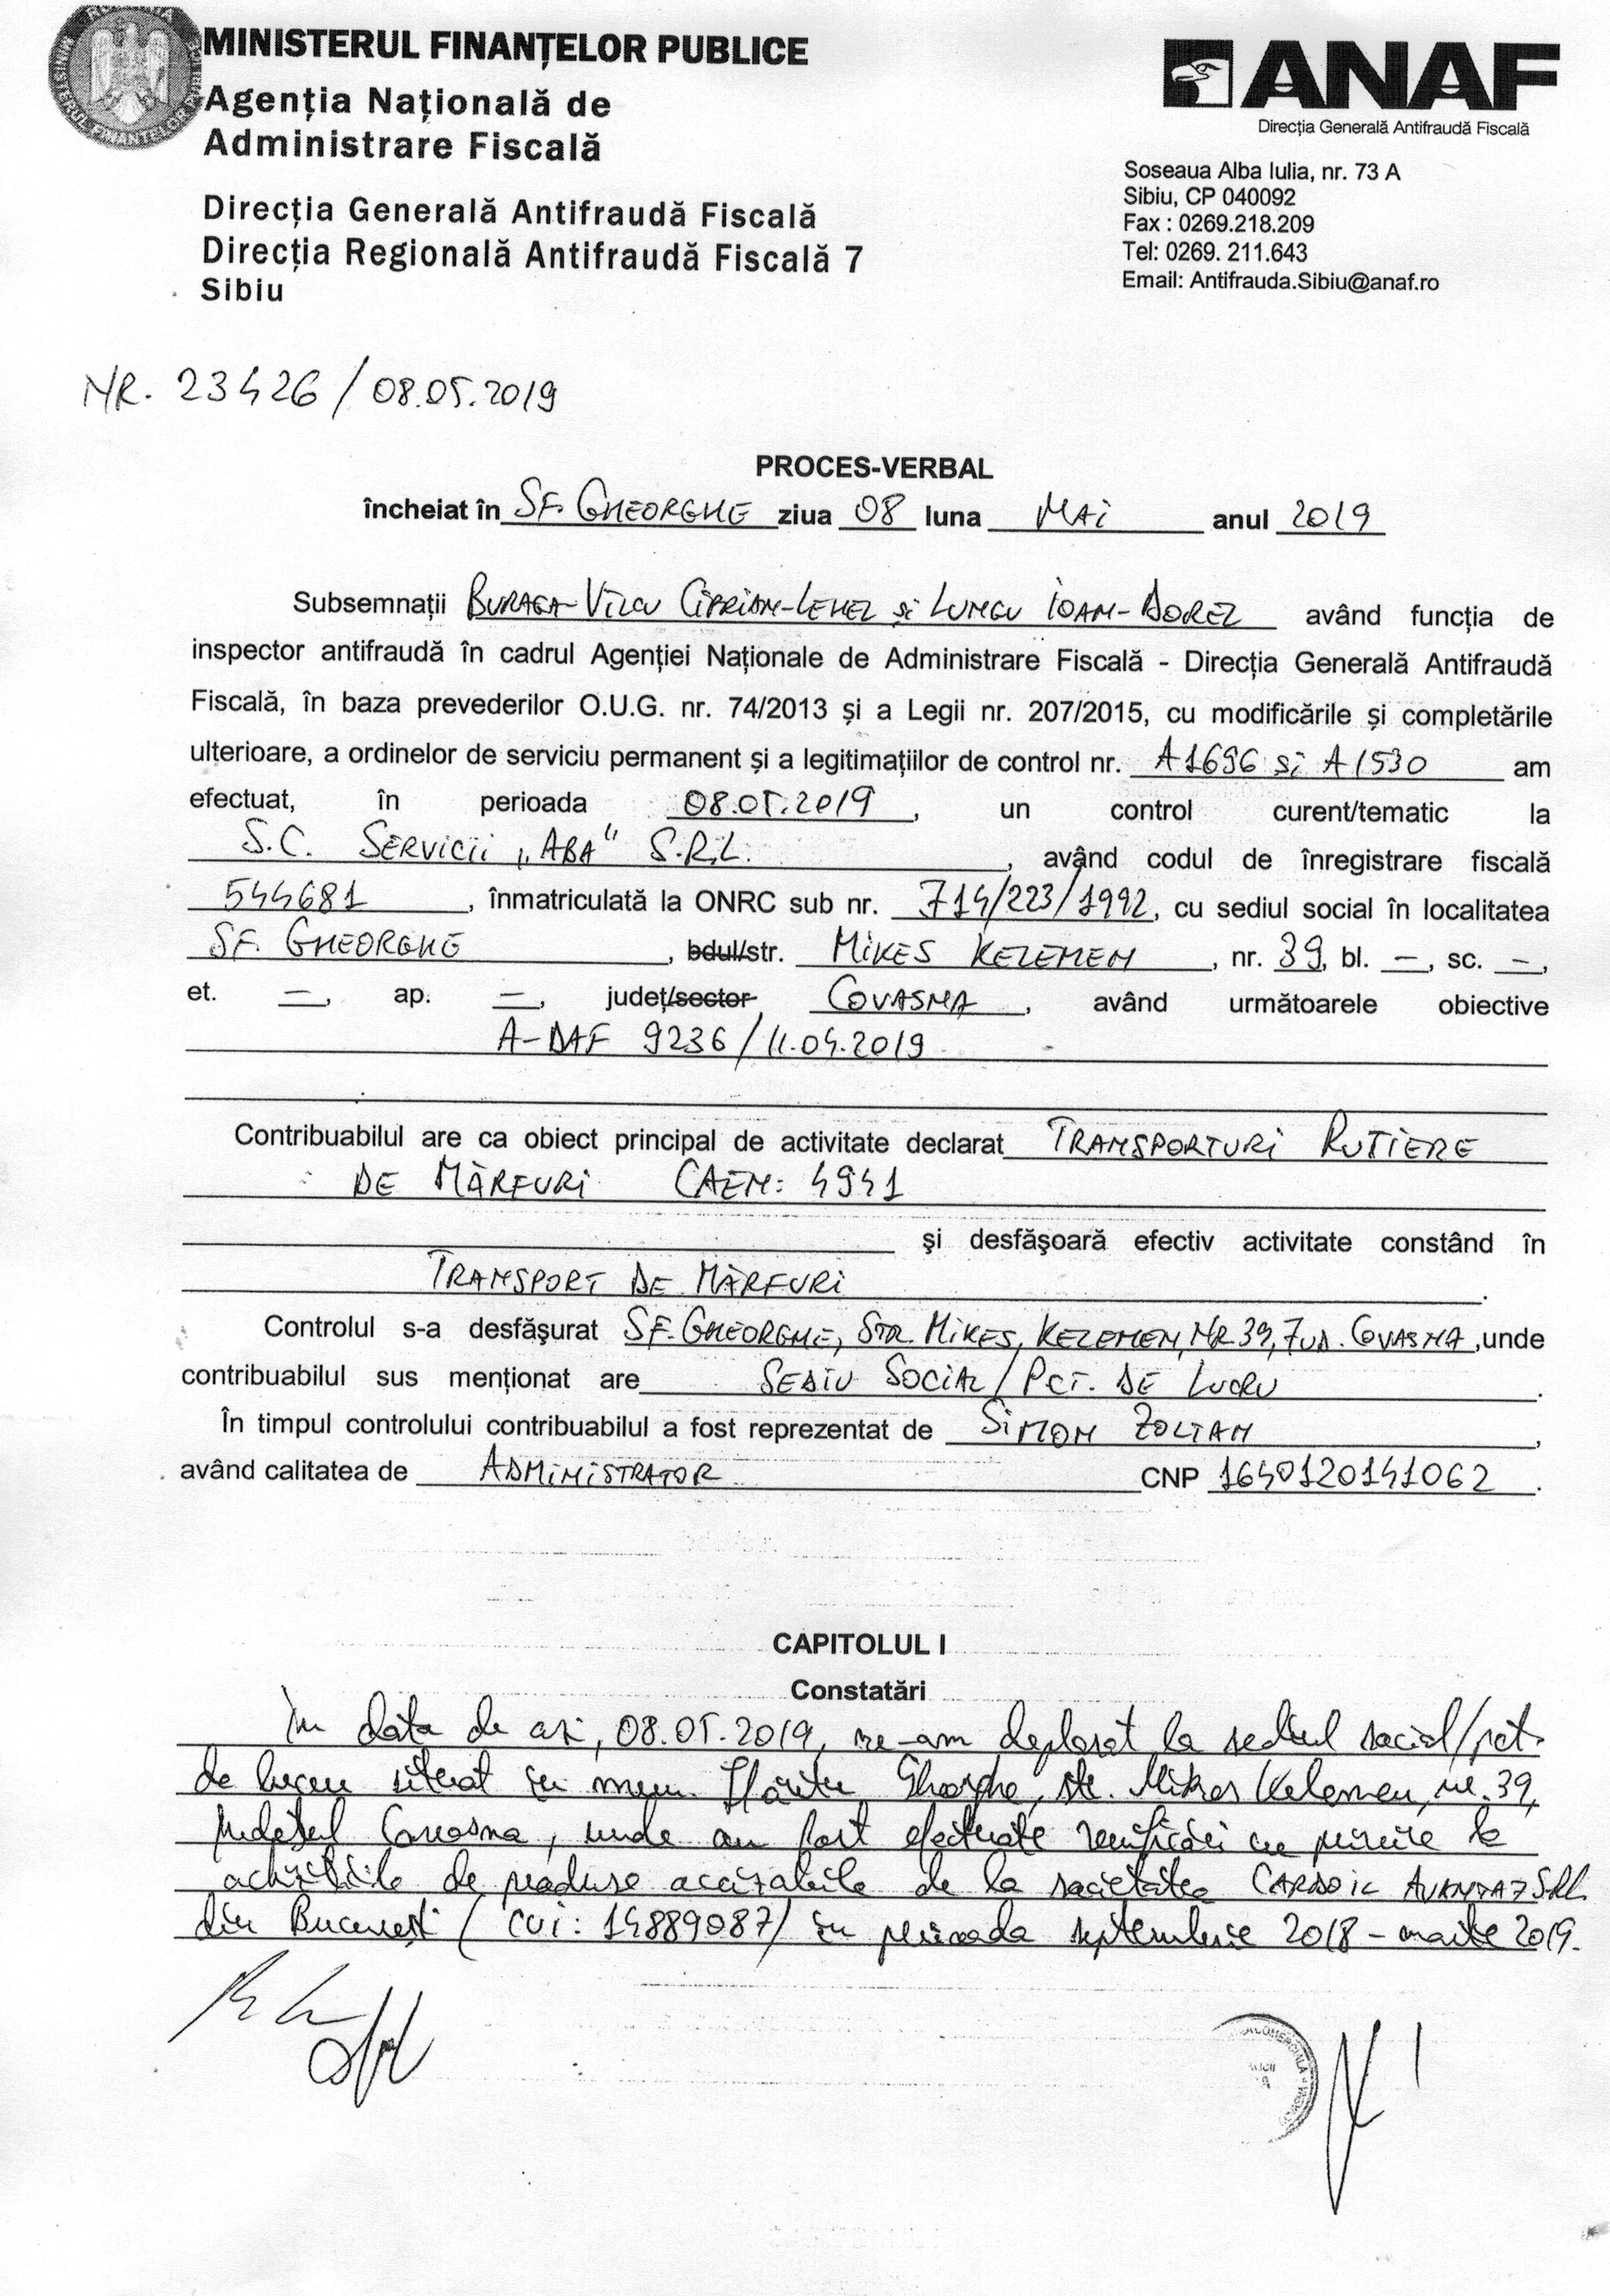 MINISTERUL FINANȚELOR PUBLICE
Agenția Națională de
Administrare Fiscală
Direcția Generală Antifraudă Fiscală
Direcția Regională Antifraudă Fiscală 7
Sibiu
ANAF
Direcția Generală Antifraudă Fiscală
Soseaua Alba Iulia, nr. 73 A
Sibiu, CP 040092
Fax : 0269.218.209
Tel: 0269. 211.643
Email: Antifrauda.Sibiu@anaf.ro
NR. 23426 / 08.05.2019
PROCES-VERBAL
încheiat în SF. GHEORGHE ziua 08 luna MAI anul 2019
Subsemnații BURAGA-VÎLCU CIPRIAN-LEHEL și LUNGU IOAN-DOREL având funcția de
inspector antifraudă în cadrul Agenției Naționale de Administrare Fiscală - Direcția Generală Antifraudă
Fiscală, în baza prevederilor O.U.G. nr. 74/2013 și a Legii nr. 207/2015, cu modificările și completările
ulterioare, a ordinelor de serviciu permanent și a legitimațiilor de control nr. A1696 și A1530 am
efectuat, în perioada 08.05.2019, un control curent/tematic la
S.C. SERVICII „ABA" S.R.L., având codul de înregistrare fiscală
544681, înmatriculată la ONRC sub nr. J14/223/1992, cu sediul social în localitatea
SF. GHEORGHE, bdul/str. MIKES KELEMEN, nr. 39, bl. —, sc. —,
et. —, ap. —, județ/sector COVASNA, având următoarele obiective
A-DAF 9236 / 11.04.2019
Contribuabilul are ca obiect principal de activitate declarat TRANSPORTURI RUTIERE
DE MĂRFURI CAEN: 4941
și desfășoară efectiv activitate constând în
TRANSPORT DE MĂRFURI.
Controlul s-a desfășurat SF. GHEORGHE, STR. MIKES KELEMEN, NR 39, JUD. COVASNA, unde
contribuabilul sus menționat are SEDIU SOCIAL / PCT. DE LUCRU.
În timpul controlului contribuabilul a fost reprezentat de SIMON ZOLTAN,
având calitatea de ADMINISTRATOR CNP 1640120141062.
CAPITOLUL I
Constatări
În data de azi, 08.05.2019, ne-am deplasat la sediul social/pct.
de lucru situat în mun. Sfântu Gheorghe, str. Mikes Kelemen, nr. 39,
județul Covasna, unde au fost efectuate verificări cu privire la
achizițiile de produse accizabile de la societatea CARDOIL AVANTAJ SRL
din București (CUI: 14889087) în perioada septembrie 2018 – martie 2019.
1